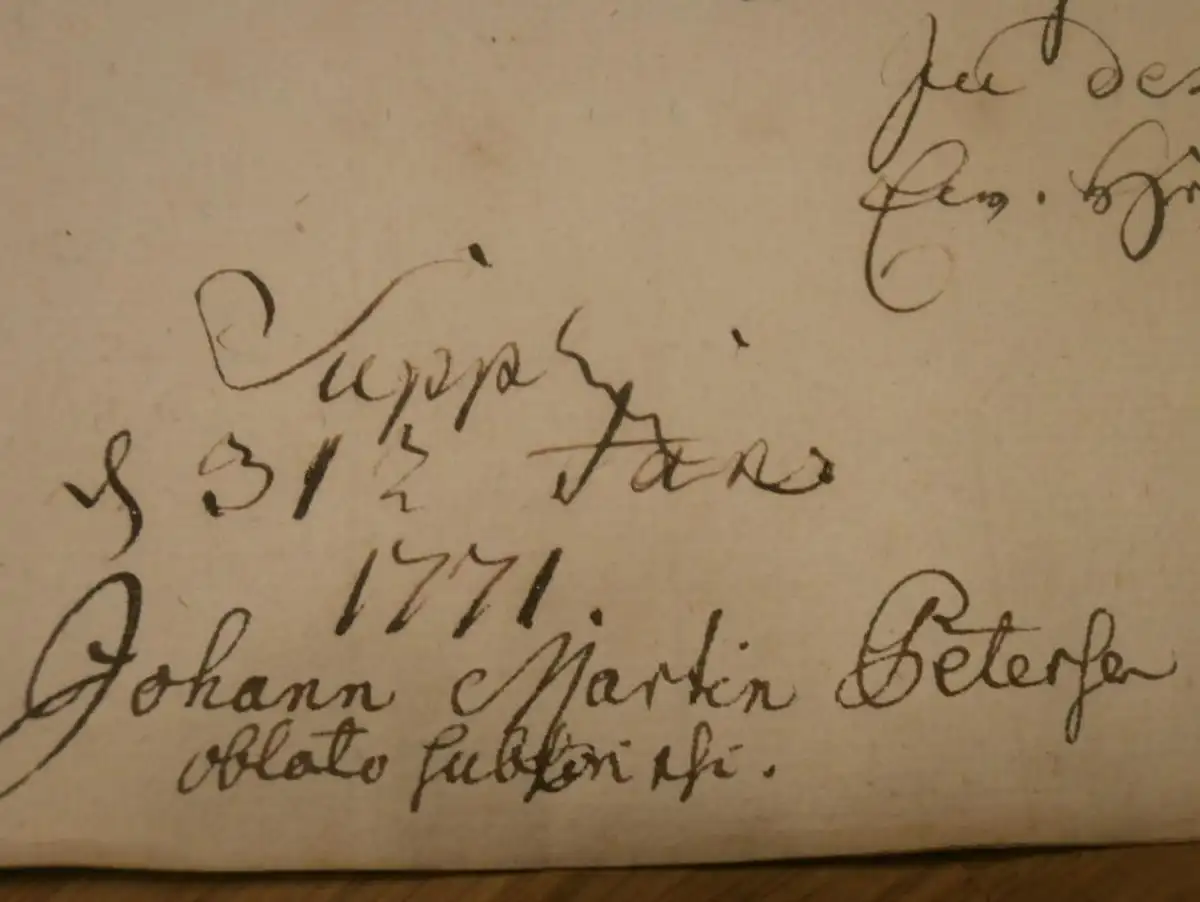 In des
Ew. H
Suppl.
d 31 Jan.
1771
Johann Martin Petersen
oblato subscripsi.